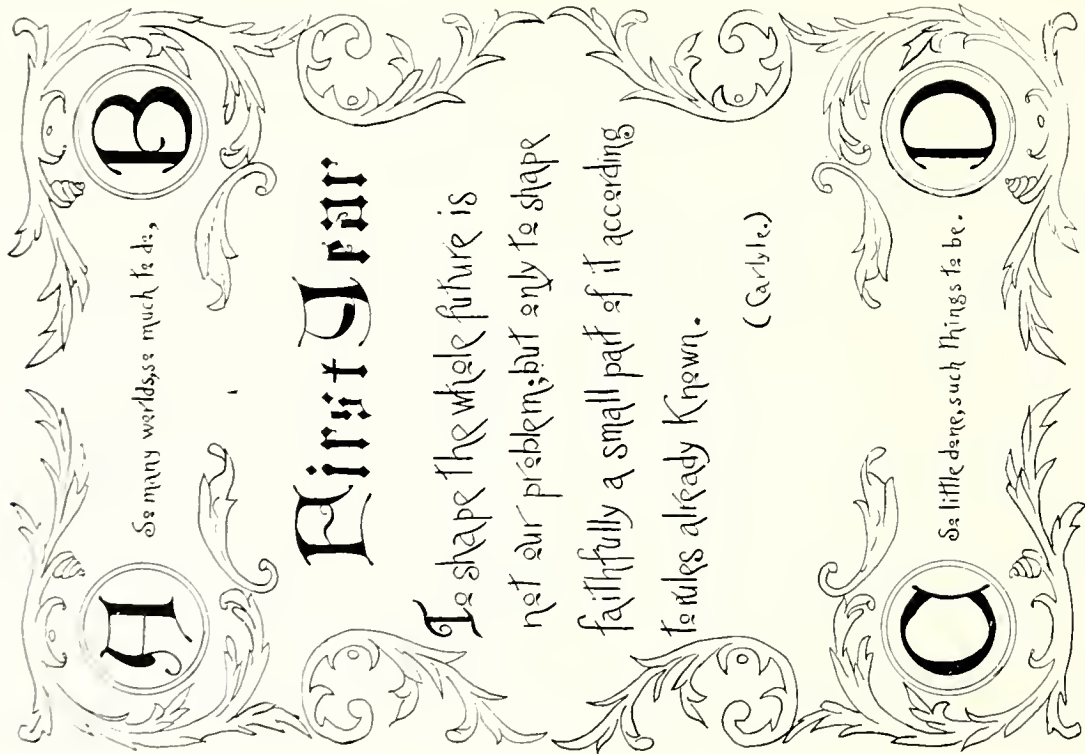 A
B
So many worlds, so much to do,
First Year
To shape the whole future is
not our problem; but only to shape
faithfully a small part of it according
to rules already Known.
(Carlyle.)
So little done, such things to be.
C
D